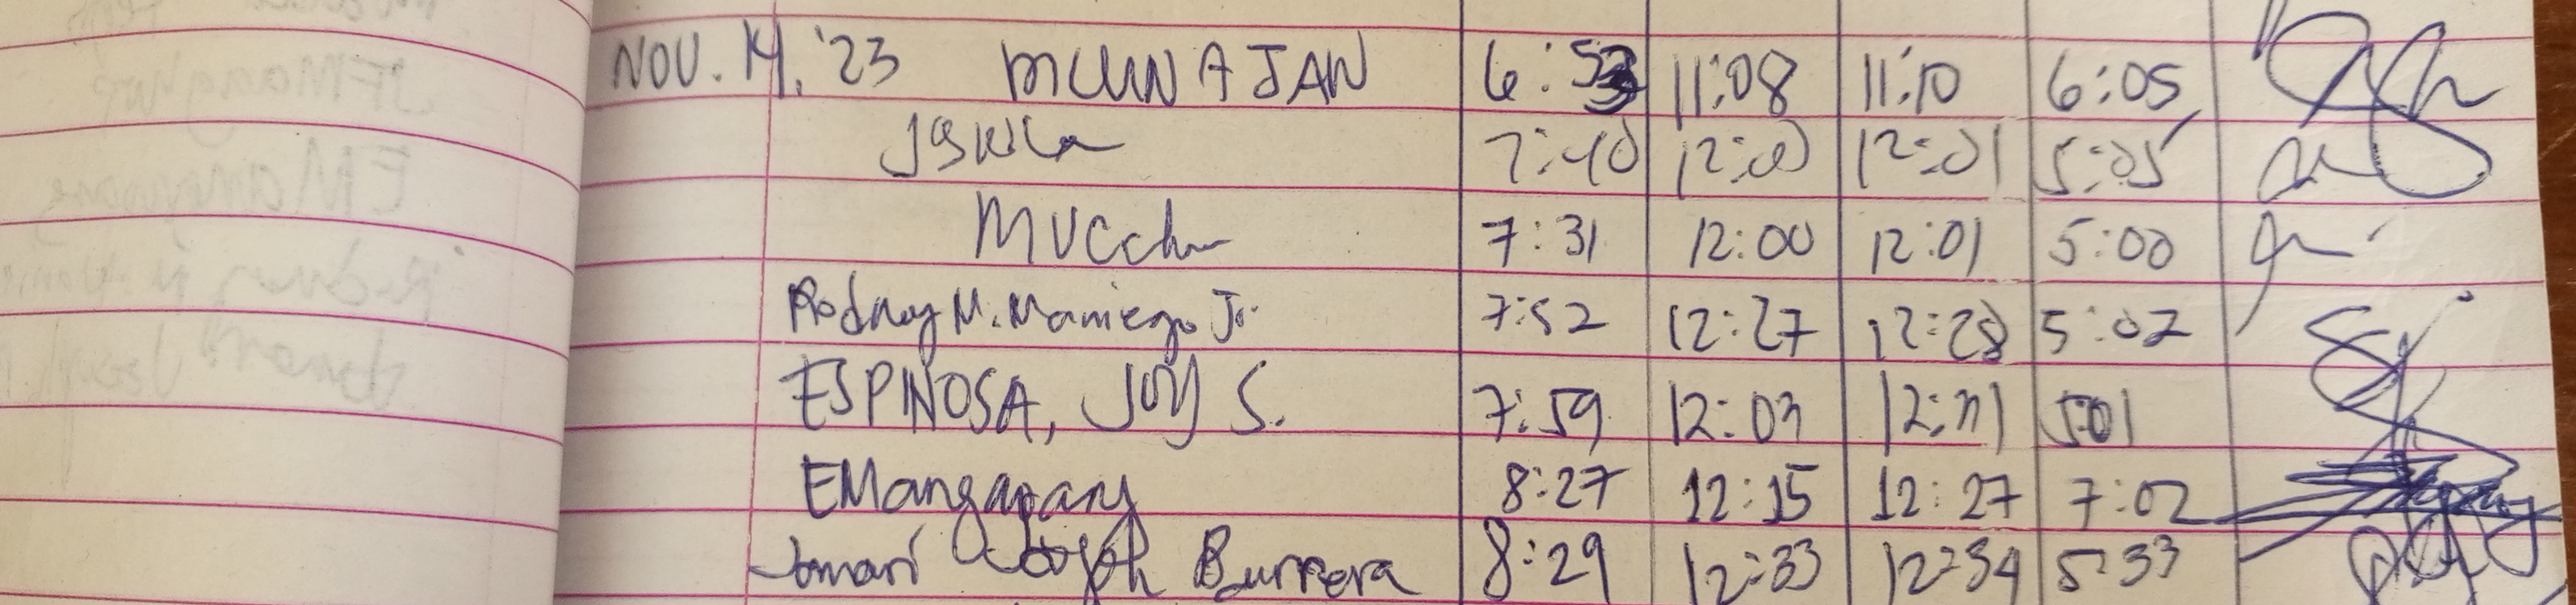 NOV. 14. '23 MUNAJAN 6:53 11:08 11:10 6:05
7:40 12:00 12:01 5:05
7:31 12:00 12:01 5:00
Rodney M. Maniego Jr. 7:52 12:27 12:28 5:02
ESPINOSA, JOY S. 7:59 12:03 12:31 5:01
EMangapany 8:27 12:15 12:27 7:02
Jomari Joseph Burrera 8:29 12:33 12:34 5:33